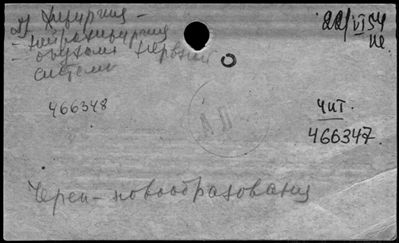 2) Хирургия -
нейрохирургия
опухоли нервной
системы
22/VI 54
не.
466348
Чит.
466347.
АП
Череп - новообразования